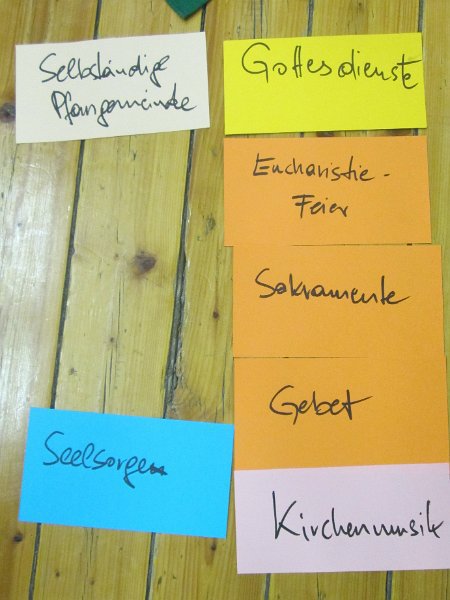 Selbständige
Pfarrgemeinde
Gottesdienste
Eucharistie-
Feier
Sakramente
Gebet
Seelsorge
Kirchenmusik